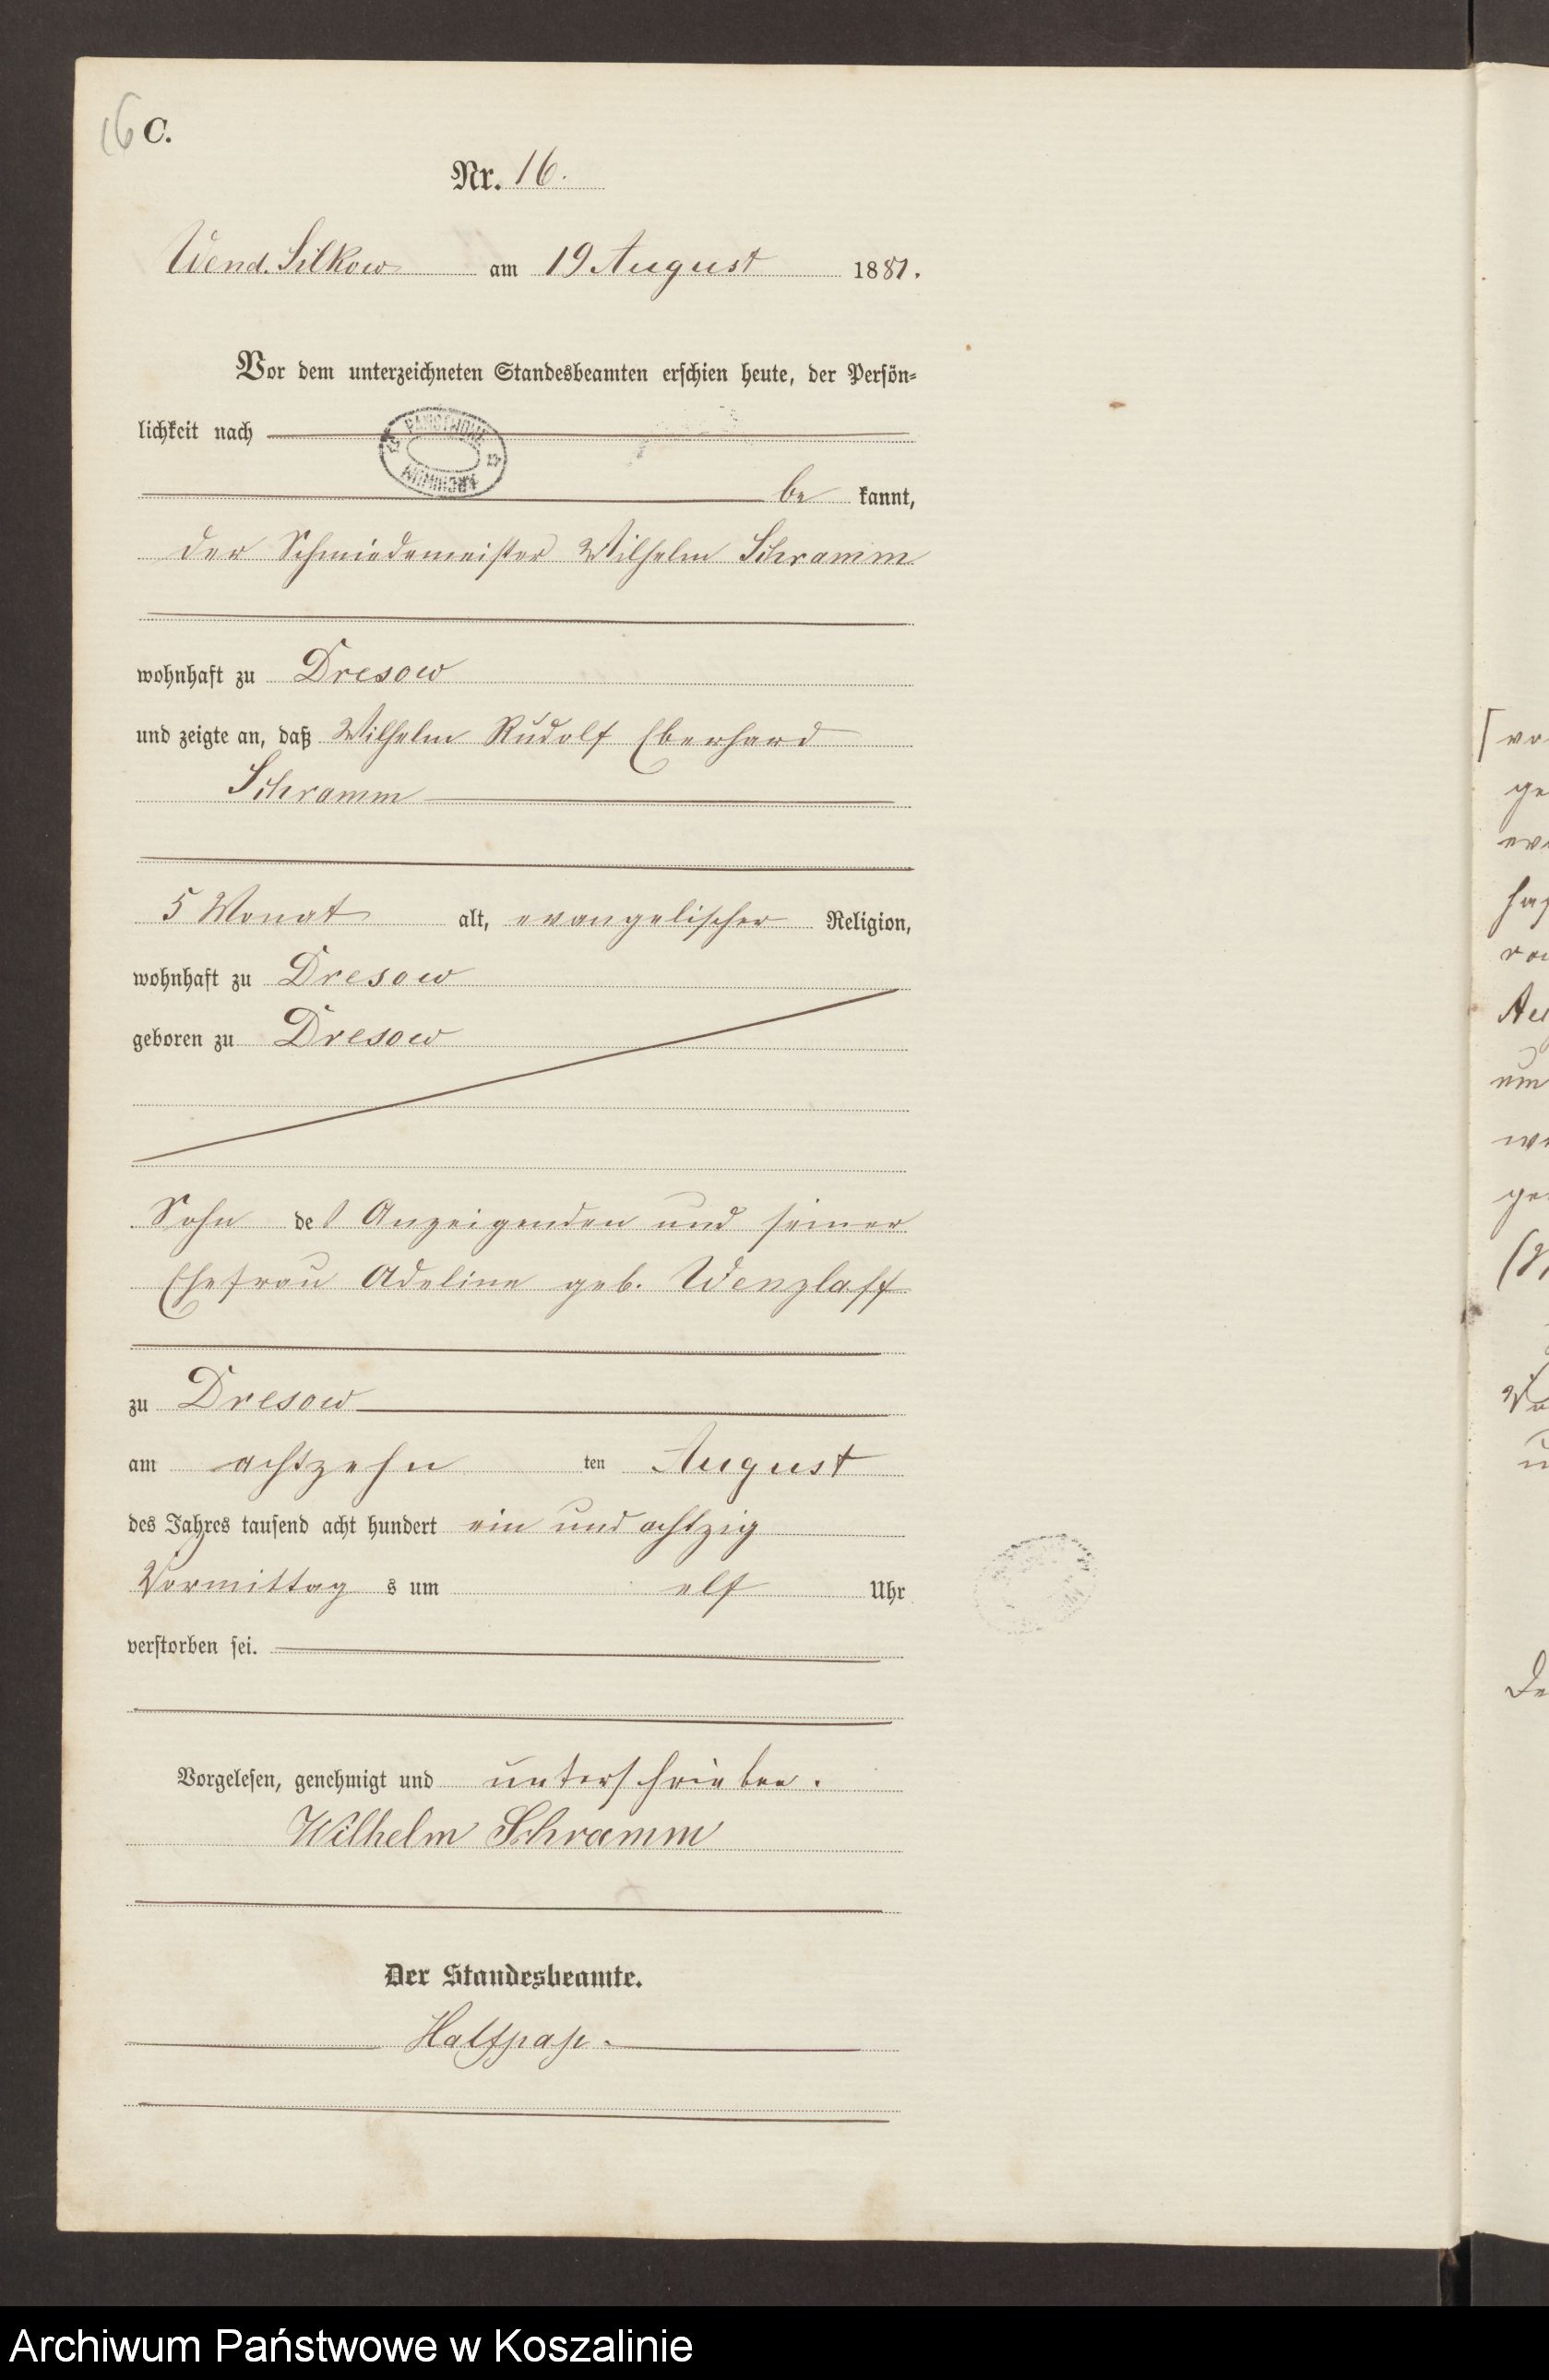 16 C.
Nr. 16.
Wend. Silkow am 19 August 1881.
Vor dem unterzeichneten Standesbeamten erschien heute, der Persön-
lichkeit nach
be kannt,
der Schmiedemeister Wilhelm Schramm
wohnhaft zu Dresow
und zeigte an, daß Wilhelm Rudolf Eberhard
Schramm
5 Monat alt, evangelischer Religion,
wohnhaft zu Dresow
geboren zu Dresow
Sohn des Anzeigenden und seiner
Ehefrau Adeline geb. Wenzlaff
zu Dresow
am achtzehn ten August
des Jahres tausend acht hundert ein und achtzig
Vormittag s um elf Uhr
verstorben sei.
Vorgelesen, genehmigt und unterschrieben.
Wilhelm Schramm
Der Standesbeamte.
Halfpap.
Archiwum Państwowe w Koszalinie